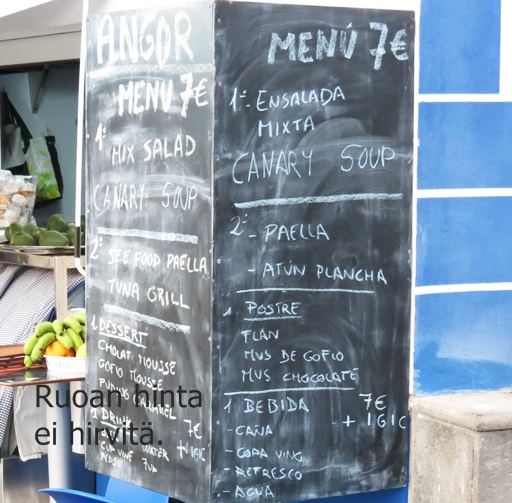 ANGOR
MENU 7€
1º MIX SALAD
CANARY SOUP
2º SEE FOOD PAELLA
TUNA GRILL
1 DESSERT
CHOLAT MOUSSE
GOFIO MOUSSE
CARAMEL
1 DRINK 7€
WATER + IGIC
7UP
MENÚ 7€
1º- ENSALADA
MIXTA
CANARY SOUP
2º- PAELLA
- ATÚN PLANCHA
1 POSTRE
FLAN
MUS DE GOFIO
MUS CHOCOLATE
1 BEBIDA 7€
- CAÑA + IGIC
- COPA VINO
- REFRESCO
- AGUA
Ruoan hinta
ei hirvitä.